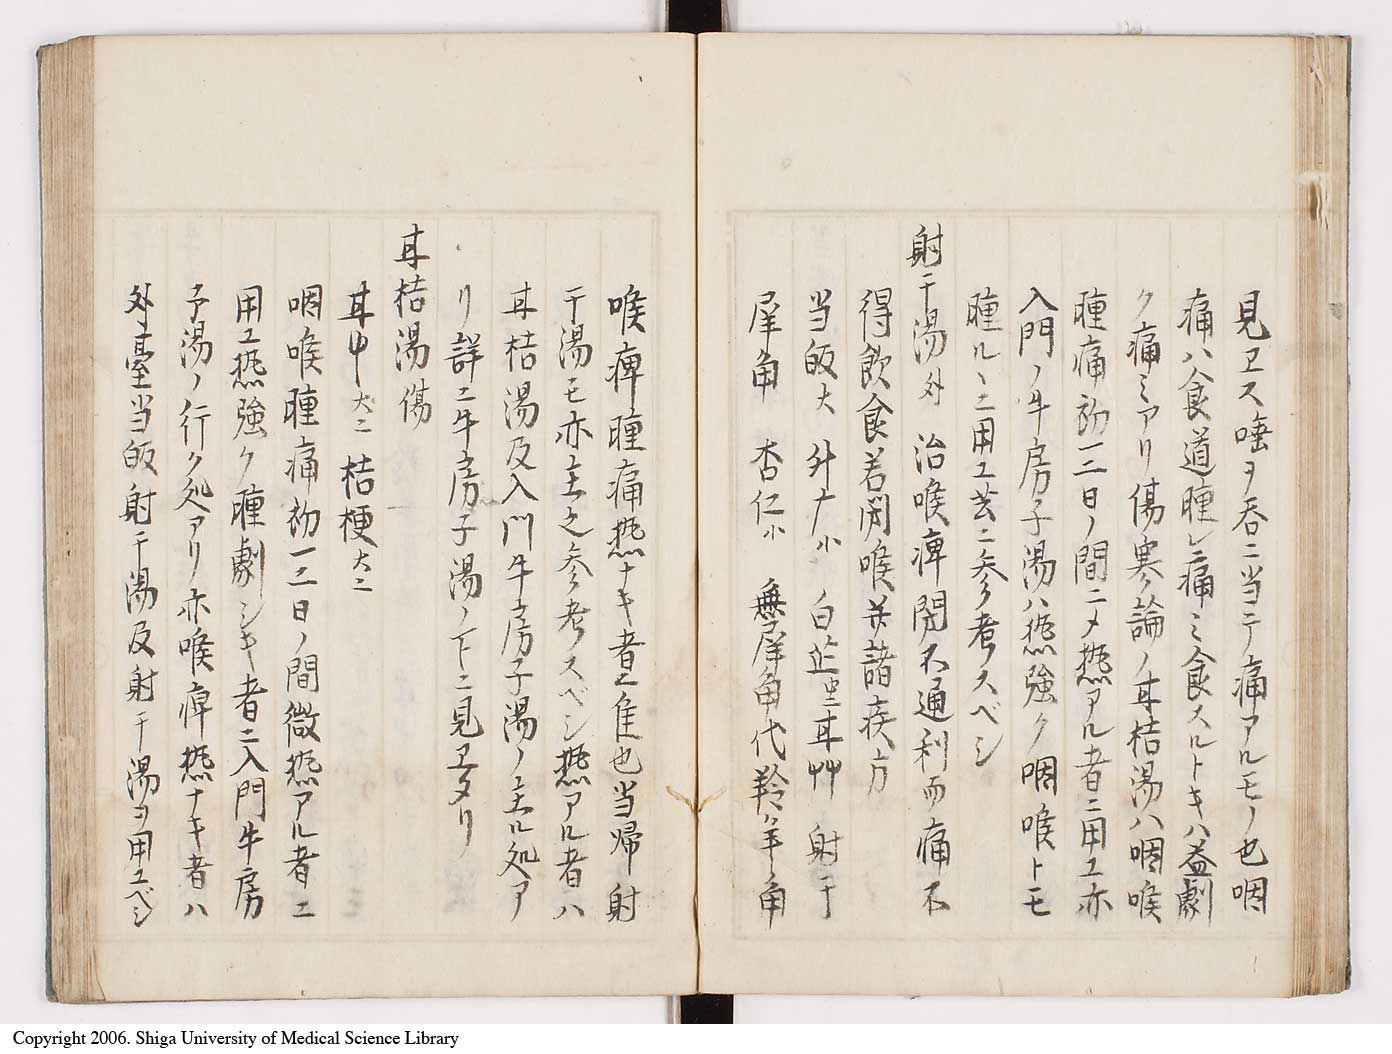 見ヱス唾ヲ呑ニ当テ痛アルモノ也咽
痛ハ食道腫レ痛ミ食スルトキハ益劇
ク痛ミアリ傷寒論ノ甘桔湯ハ咽喉
腫痛初一二日ノ間ニメ熱アル者ニ用ユ亦
入門ノ牛房子湯ハ熱強ク咽喉トモ
腫ルヽニ用ユ芸ニ参考スベシ
射干湯外 治喉痺閉不通利而痛不
得飲食若閉喉并諸疾方
当皈大 升广小 白芷中 甘艸 射干
犀角 杏仁小 無犀角代羚羊角
喉痺腫痛熱ナキ者ニ隹也当帰射
干湯モ亦主之参考スベシ熱アル者ハ
甘桔湯及入門牛房子湯ノ主ル処ア
リ詳ニ牛房子湯ノ下ニ見ヱタリ
甘桔湯傷
甘中大二 桔梗大二
咽喉腫痛初一二日ノ間微熱アル者ニ
用ユ熱強ク腫劇シキ者ニ入門牛房
子湯ノ行ク処アリ亦喉痺熱ナキ者ハ
外臺当皈射干湯及射干湯ヲ用ユベシ
Copyright 2006. Shiga University of Medical Science Library